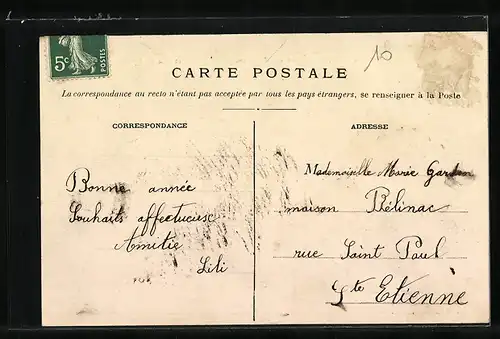 5c
POSTES
10
CARTE POSTALE
La correspondance au recto n'étant pas acceptée par tous les pays étrangers, se renseigner à la Poste
CORRESPONDANCE
Bonne année
Souhaits affectueuse
Amitie
Lili
ADRESSE
Mademoiselle Marie
maison Bélinac
rue Saint Paul
Ste Etienne